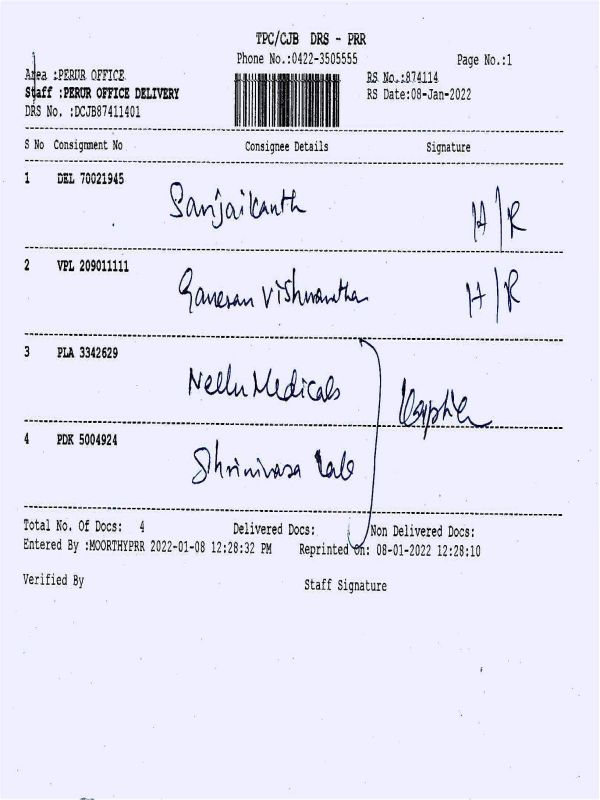 TPC/CJB DRS - PRR
Phone No.:0422-3505555 Page No.:1
Area :PERUR OFFICE RS No.:874114
Staff :PERUR OFFICE DELIVERY RS Date:08-Jan-2022
DRS No. :DCJB87411401
S No Consignment No Consignee Details Signature
1 DEL 70021945 Sanjaikanth H/R
2 VPL 209011111 Ganesan Vishwanathan H/R
3 PLA 3342629 Nellu Medicals
4 PDK 5004924 Shrinivasa Lab
Total No. Of Docs: 4 Delivered Docs: Non Delivered Docs:
Entered By :MOORTHYPRR 2022-01-08 12:28:32 PM Reprinted On: 08-01-2022 12:28:10
Verified By Staff Signature